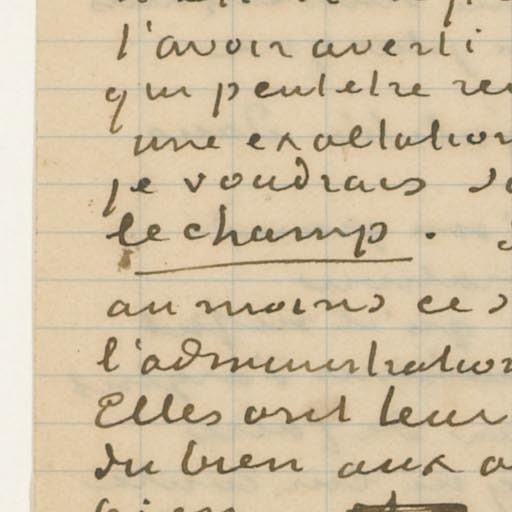 l'avoir averti
qui peut etre
une exaltation
je voudrais
le champ.
au moins ces
l'administration
Elles ont leur
du bien aux